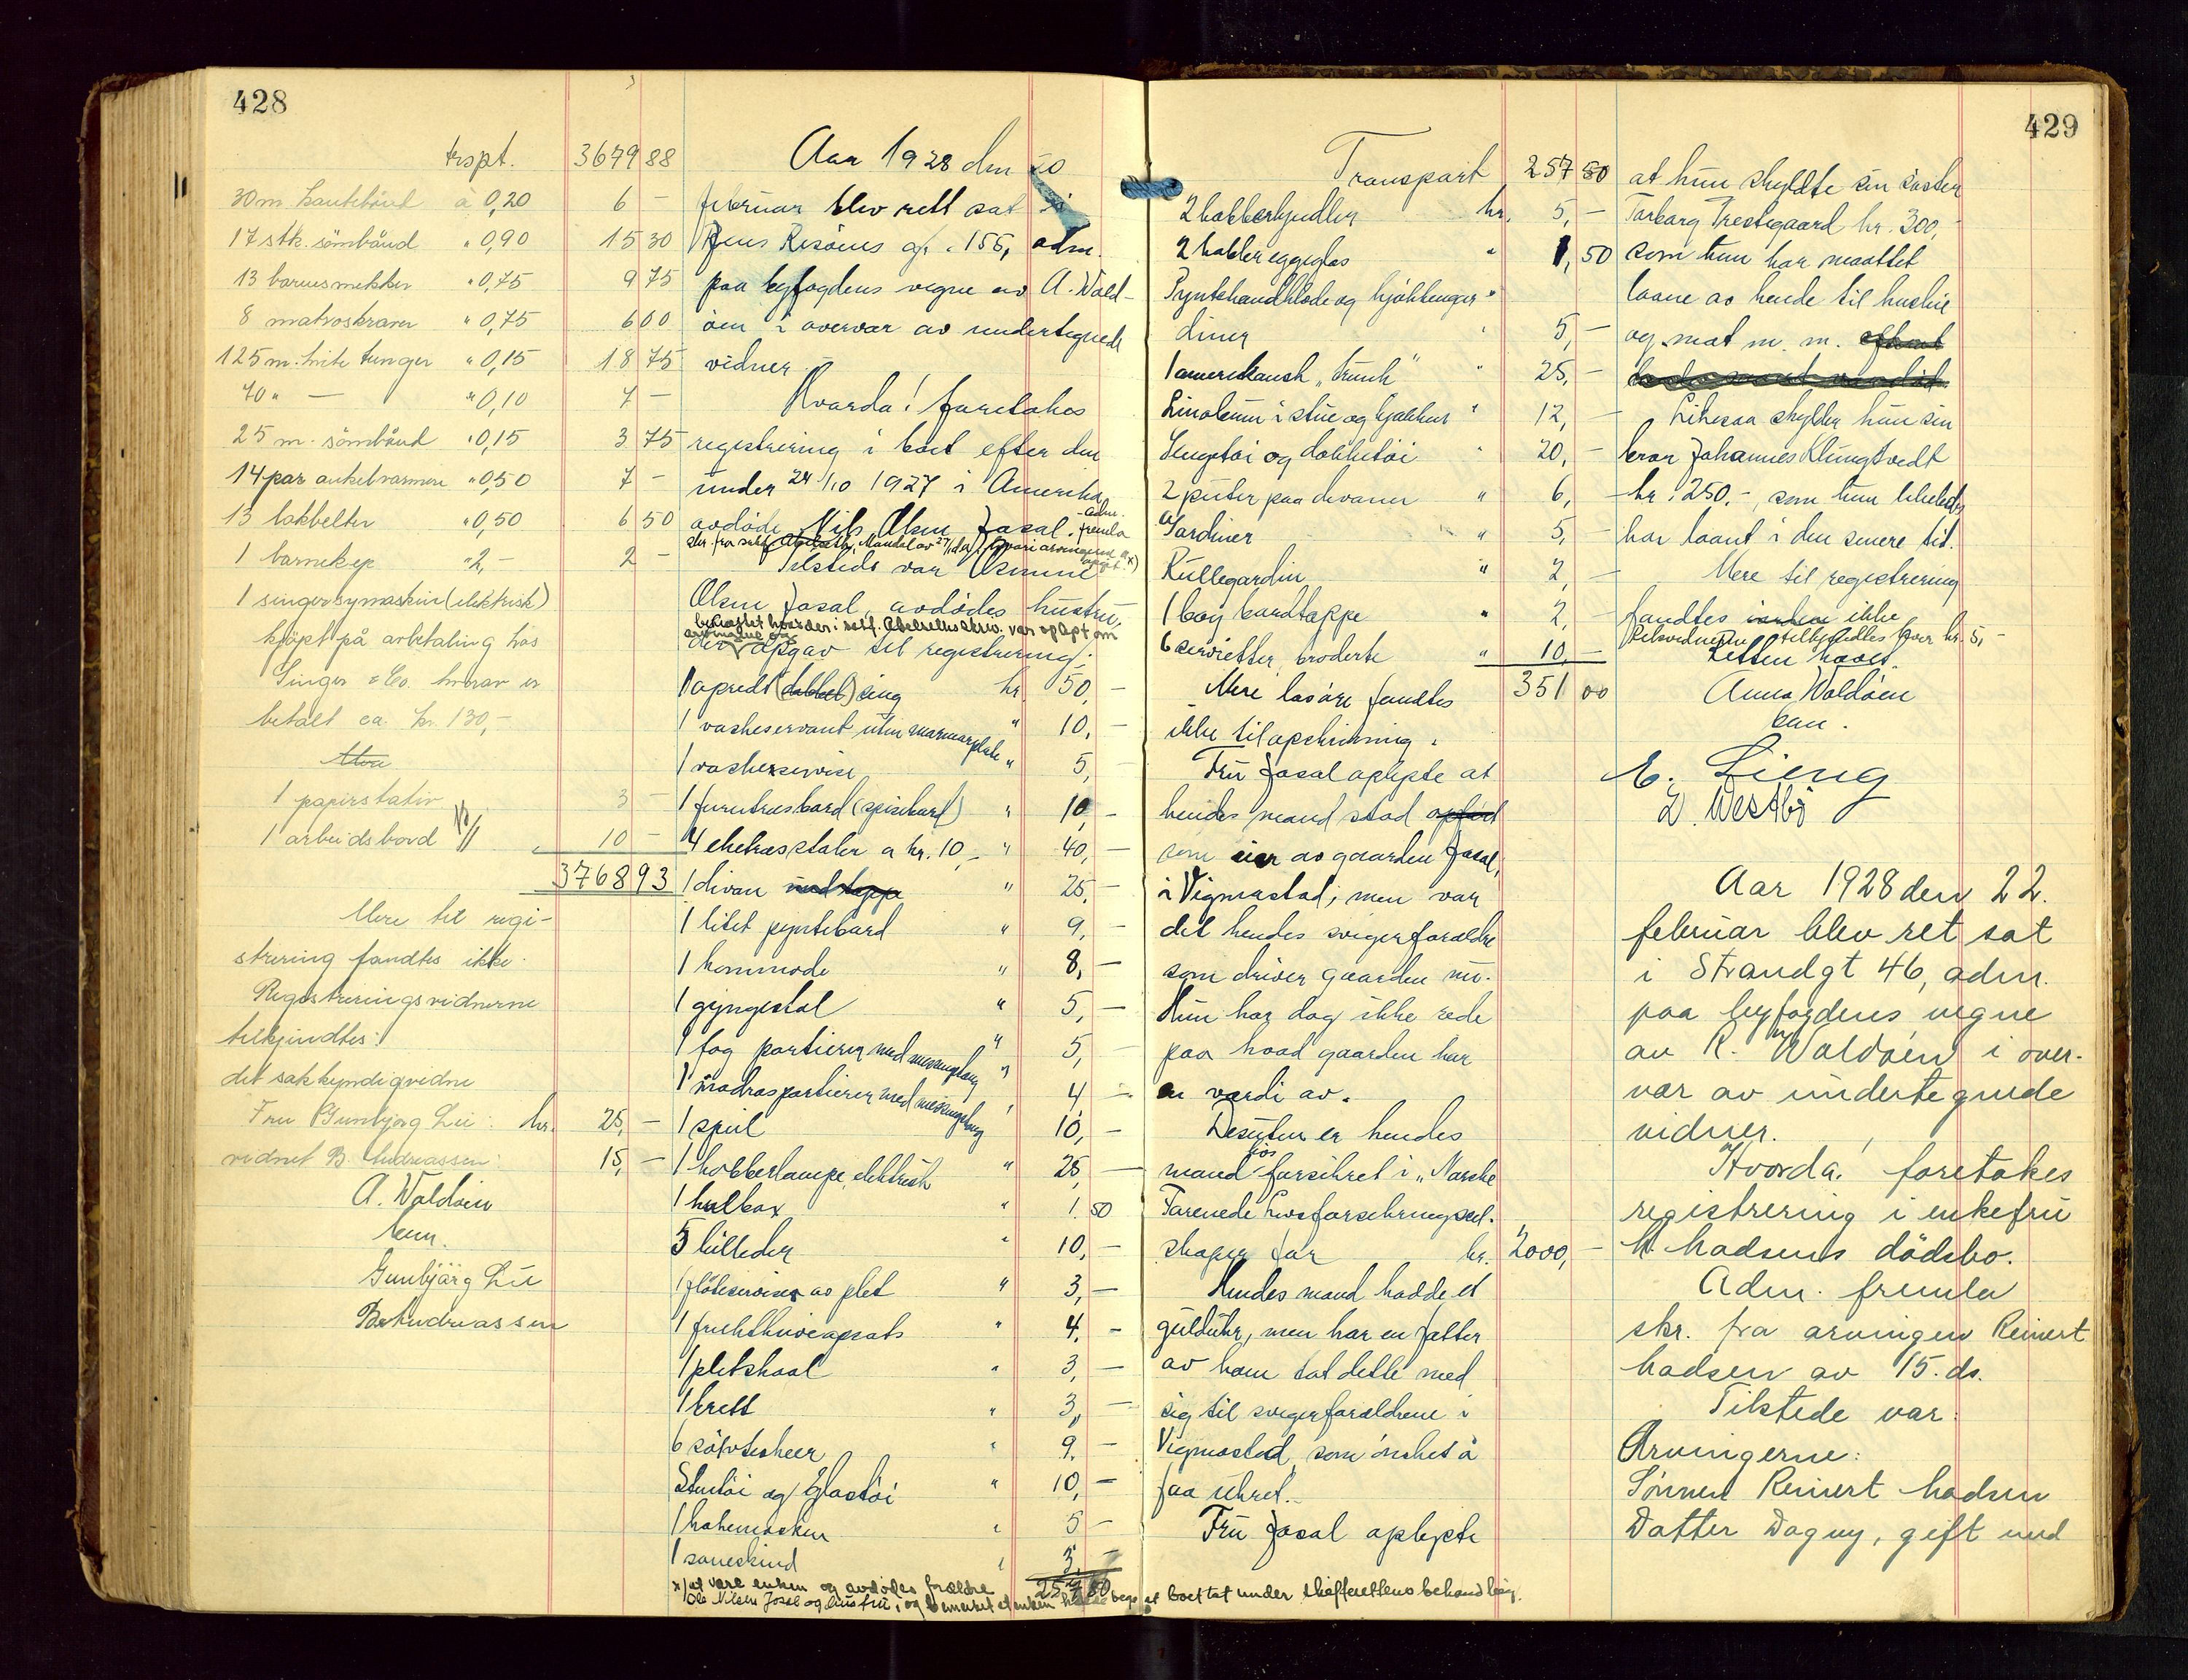 428
trspt. 3679 88
30 m. kantebånd à 0,20 6 -
17 stk. sömbånd " 0,90 15 30
13 barnesmekker " 0,75 9 75
8 matroskraver " 0,75 6 00
125 m. hvite tunger " 0,15 18 75
70 " — " 0,10 7 -
25 m. sömbånd " 0,15 3 75
14 par ankelvarmere " 0,50 7 -
13 lakbelter " 0,50 6 50
1 barnekep " 2,- 2 -
1 singersymaskin (elektrisk)
kjöpt på avbetaling hos
Singer & Co. hvorav er
betalt ca. kr. 130,-
1 papirstativ 3 -
1 arbeidsbord 10 -
3768 93
Mere til regi-
strering fandtes ikke.
Registreringsvidnerne
tilkjendtes:
det sakkyndig vidne
Fru Gunbjörg Lie: kr. 25,-
vidnet B. Andreassen: 15,-
A. Waldöen
kan.
Gunbjärg Lie
B. Andreassen
Aar 1928 den 20
februar blev rett sat i
Jens Risöens gt. 155, adm.
paa byfogdens vegne av A. Wald-
öen i overvær av undertegnede
vidner.
Hvorda! foretokes
registrering i boet efter den
under 24/10 1927 i Amerika
avdöde Nils Olsen Jaasal. Adm. fremla
Tilstede var
Olsen Jaasal, avdödes hustru,
der opgav til registrering:
1 opredt (dobbel) seng kr. 50,-
1 vaskeservant uten marmorplate " 10,-
1 vaskeservise " 5,-
1 furutræsbord (spisebord) " 10,-
4 eketræsstoler a kr. 10,- " 40,-
1 divan med teppe " 25,-
1 litet pyntebord " 9,-
1 kommode " 8,-
1 gyngestol " 5,-
1 fag portierer med messingstang " 5,-
1 madrasportierer med messingstang " 4 -
1 speil 10,-
1 kobberlampe, elektrisk " 25,-
1 kulbox " 1.50
5 billeder " 10,-
1 flöteservise av plet " 3,-
1 fruktknivopsats " 4,-
1 pletskaal " 3,-
1 brett " 3,-
6 sölvteskeer " 9,-
Stentöi og Glastöi " 10,-
1 kakemasken " 5 -
1 saueskind " 3,-
257 50
x) at være enken og avdödes forældre
Ole Nilsen Josal og hustru, og bemerket at enken hadde beg. at boet tat under skifterettens behandling.
429
Transport 257 50
2 kobberkjedler kr. 5,-
2 kobbereggeglas " 1,50
Pyntehandklæde og kjökkengar-
diner " 5,-
1 amerikansk "trunk" " 25,-
Linoleum i stue og kjøkken " 12,-
Sengetöi og dækketöi " 20,-
2 puter paa divanen " 6,-
Gardiner " 5,-
Rullegardin " 2,-
1 boy bordteppe " 2,-
6 servietter, broderte " 10,-
Mere lösöre fandtes 351 00
ikke til opskrivning.
Fru Jaasal oplyste at
hendes mand stod opförd
som eier av gaarden Jaasal,
i Vigmostad, men var
det hendes svigerforældre
som driver gaarden nu.
Hun har dog ikke rede
paa hvad gaarden har
en værdi av.
Desuten er hendes
mand forsikret i "Norske
Forenede Livsforsikringssel-
skaper for kr. 2000,-
Hendes mand hadde et
gulduhr, men har en fatter
av ham tat dette med
sig til svigerforældrene i
Vigmostad, som önsket å
faa uhret.
Fru Jaasal oplyste
at hun skyldte sin søster
Torborg Trestegaard kr. 300,-
som hun har maattet
laane av hende til husleie
og mat m. m.
Likesaa skylder hun sin
bror Johannes Klungtvedt
kr. 250.-, som hun likeledes
har laant i den senere tid.
Mere til registrering
fandtes ikke
Retsvidnerne tilkjendtes hver kr. 5,-
Retten hævet.
Anna Waldöen
kan.
E. Lieng
L. Westbö
Aar 1928 den 22.
februar blev ret sat
i Strandgt 46, adm.
paa byfogdens vegne
av K. Waldöen i over-
vær av undertegnede
vidner.
Hvorda! foretokes
registrering i enkefru
M. Madsens dödsbo.
Adm. fremla
skr. fra arvingen Reinert
Madsen av 15. ds.
Tilstede var:
Arvingerne:
Sönnen Reinert Madsen
Datter Dagny, gift med